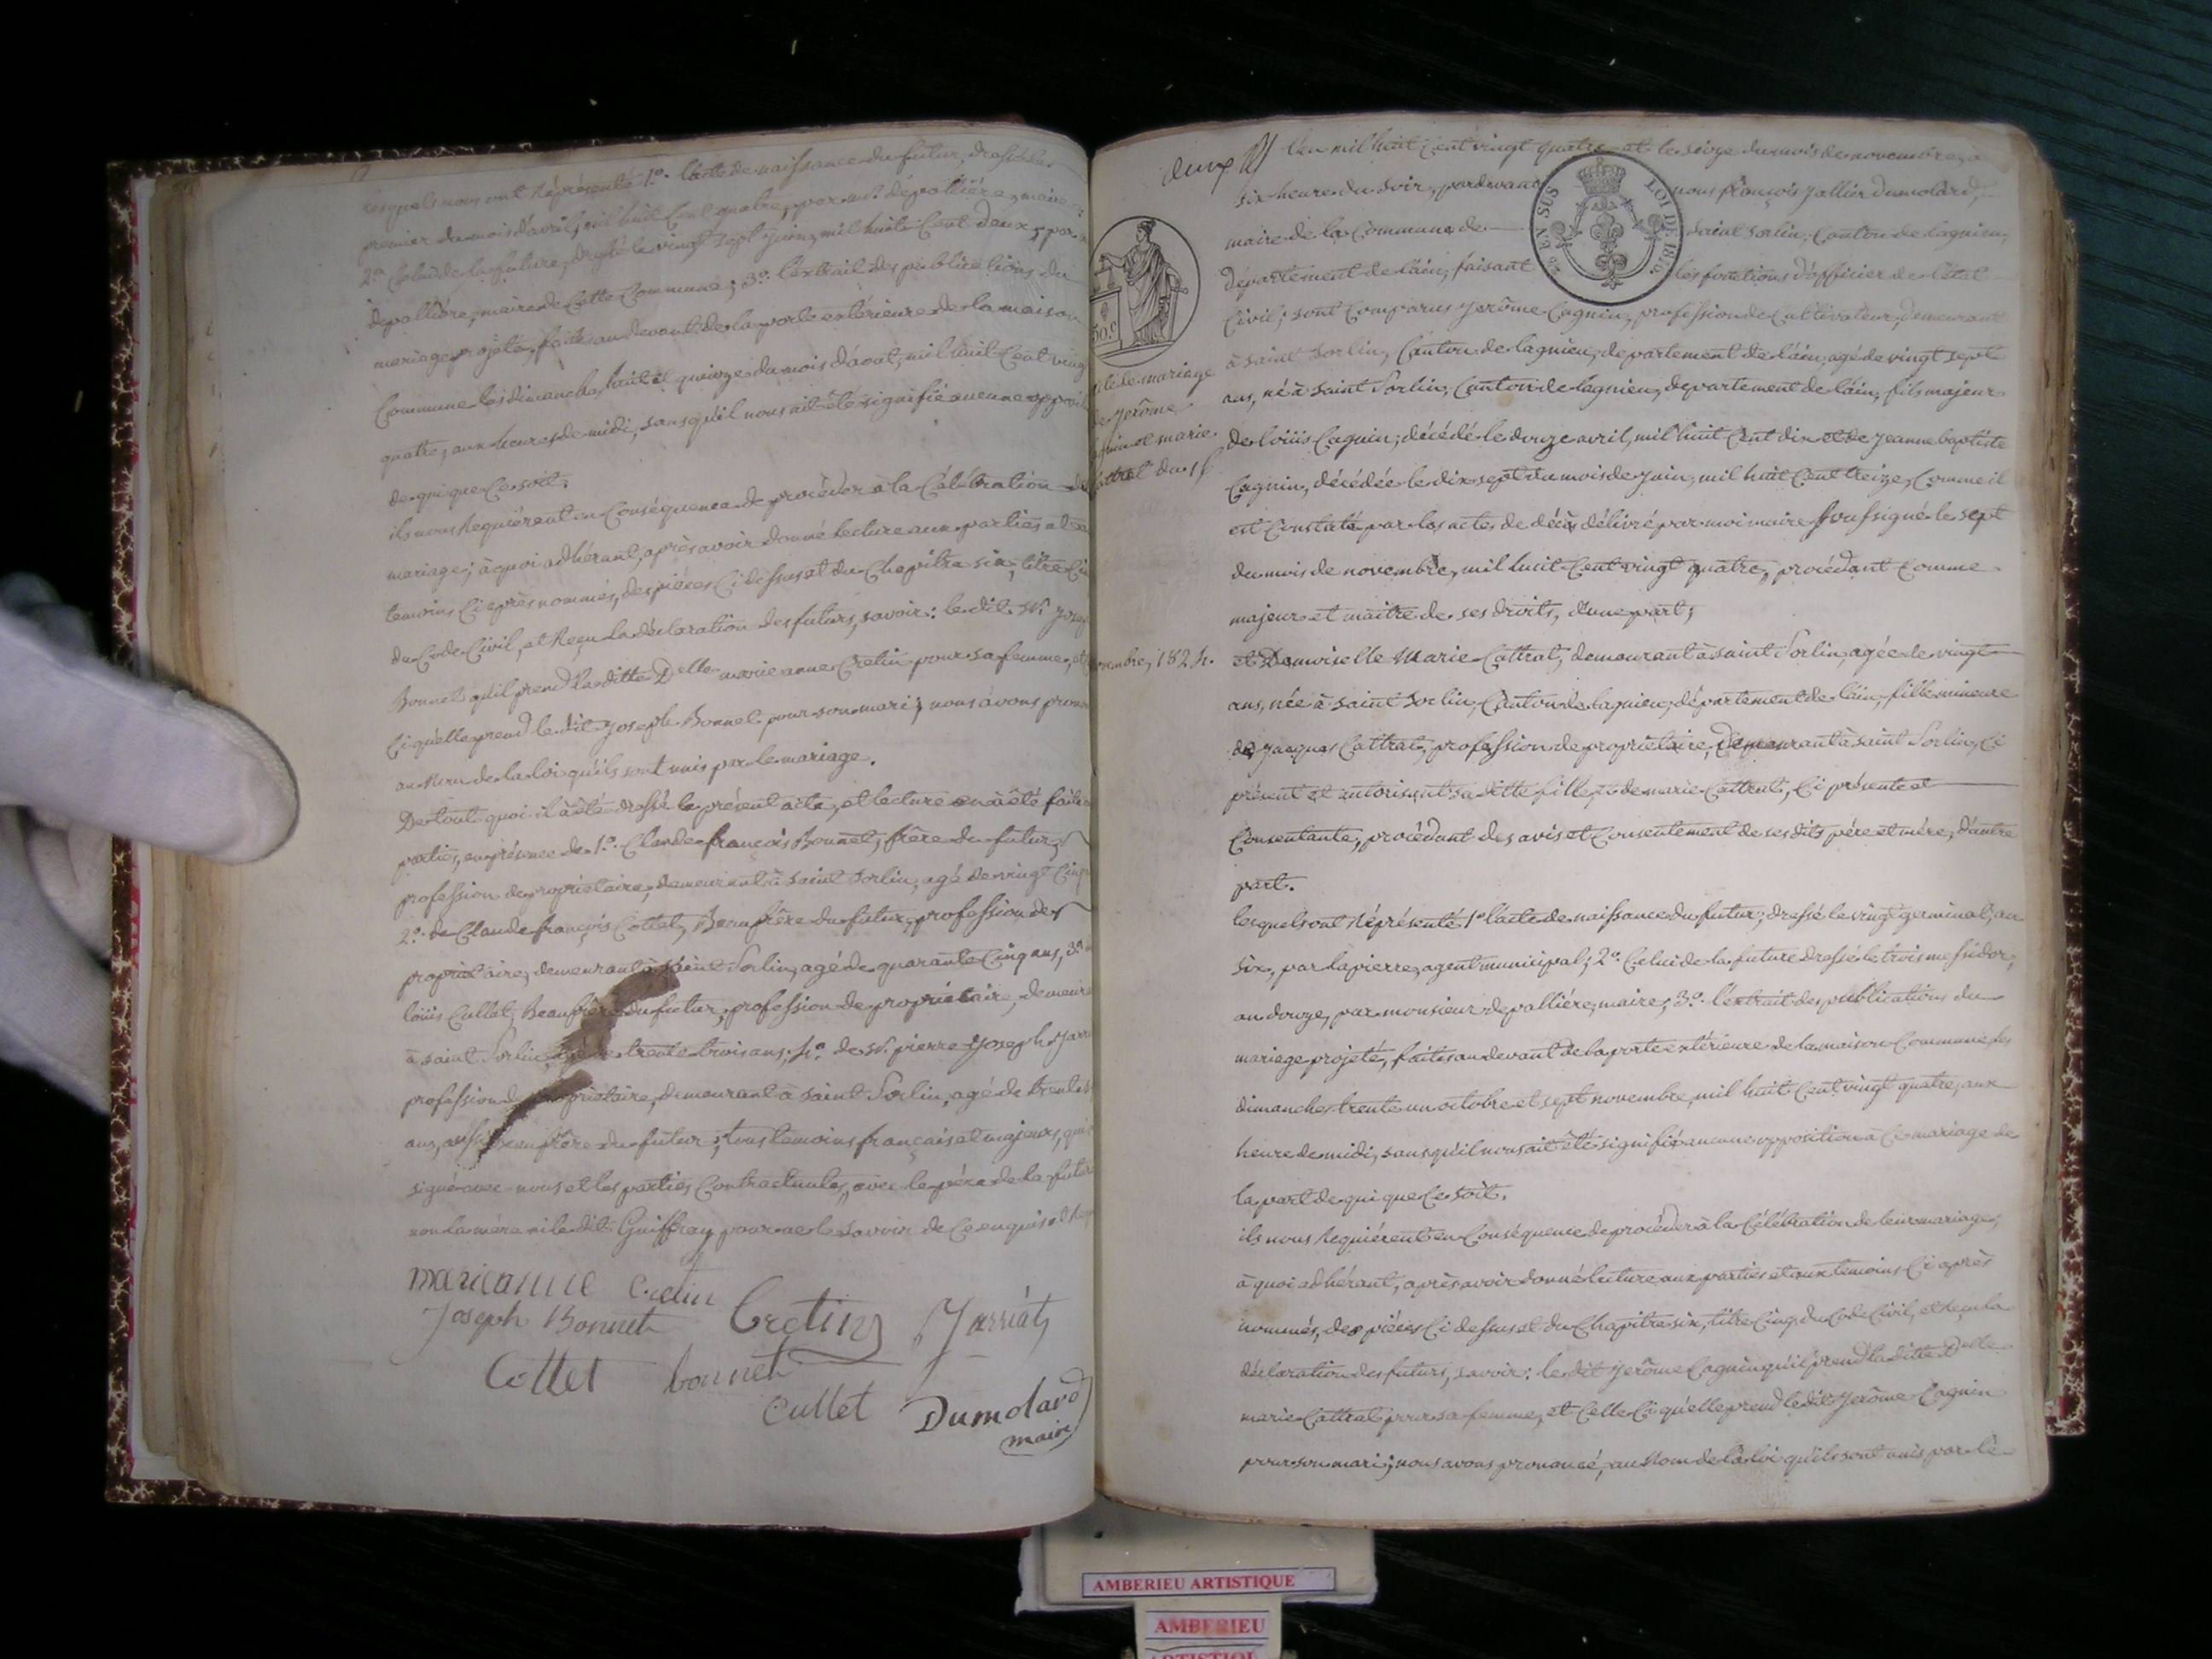 lesquels nous ont Réprésenté 1.° l'acte de naissance du futur, dressé le
premier du mois d'avril, mil huit Cent quatre, par mr. dépallière, maire
2.° Celui de la future, dressé le vingt sept juin, mil huit Cent deux, par
dépallière, maire de Cette Commune; 3.° l'extrait des publications du
mariage projeté, faites au devant de la porte extérieure de la maison
Commune les dimanche, huit et quinze du mois d'avout, mil huit Cent vingt
quatre, aux heures de midi, sans qu'il nous ait été signifié aucune
de qui que Ce soit.
ils nous Requièrent en Conséquence de procéder à la Célébration
mariage; à quoi adhérant, après avoir donné lecture aux parties et
temoins Ci après nommés, des pièces Ci dessus et du Chapitre six, titre
du Code Civil, et Reçu la déclaration des futurs, savoir: le dit sr.
Bonnet qu'il prend la ditte Delle marie anne Cretin pour sa femme, et
Ci qu'elle prend le dit Joseph Bonnet pour son mari; nous avons
au Nom de la loi qu'ils sont unis par le mariage.
De tout quoi il à été dressé le présent acte, et lecture en à été faite
parties, en présence de 1.° Claude françois Bonnet, frère du futur,
profession de propriétaire, demeurant à saint sorlin, agé de vingt Cinq
2.° de Claude françois Cottet, Beau frère du futur, profession de
propriétaire, demeurant à saint Sorlin, agé de quarante Cinq ans, 3.°
louis Cullet, Beau frère du futur, profession de propriétaire,
à saint Sorlin, trente trois ans; 4.° de sr. pierre Joseph
profession de propriétaire, demeurant à saint Sorlin, agé de
ans, aussi Beau frère du futur; tous temoins français et majeurs,
signé avec nous et les parties Contractantes, avec le père de la
non la mère ni le dit Guiffray pour ne le savoir de Ce enquis
marie anne Cretin
Joseph Bonnet Cretin Jarriat
Cottet bonnet
Cullet Dumolard
maire
deux
l'an mil huit Cent vingt quatre et le seize du mois de novembre à
six heure du soir, pardevant nous françois Jallier Dumolard,
maire de la Commune de saint sorlin, Canton de lagnieu,
département de l'ain, faisant les fonctions d'officier de l'état
LOI DE 1816
EN SUS
50.c
Civil; sont Comparus Jerôme Cagnin, profession de Cultivateur, demeurant
à saint Sorlin, Canton de lagnieu, département de l'ain, agé de vingt sept
ans, né à saint Sorlin, Canton de lagnieu, departement de l'ain, fils majeur
de louis Cagnin, décédé le douze avril, mil huit Cent dix et de Jeanne baptiste
Cagnin, décédée le dix sept du mois de Juin, mil huit Cent treize, Comme il
est Constaté par les actes de décès délivré par moi maire soussigné le sept
du mois de novembre, mil huit Cent vingt quatre, procédant Comme
majeur et maitre de ses droits, d'une part;
de mariage
Jerôme
et marie
Cattrat du 16
1824.
et Demoiselle Marie Cattrat, demeurant à saint Sorlin, agée de vingt
ans, née à saint Sorlin, Canton de lagnieu, département de l'ain, fille mineure
de Jacques Cattrat, profession de propriétaire, Demeurant à saint Sorlin, Ci
présent et autorisant sa ditte fille, et de marie Cattrat, Ci présente et
Consentante, procédant des avis et Consentement de ses dits père et mère, d'autre
part.
lesquels ont Réprésenté 1° l'acte de naissance du futur, dressé le vingt germinal, an
six, par lapierre, agent municipal; 2.° Celui de la future dressé le trois messidor,
an douze, par monsieur depallière, maire; 3.° l'extrait des publications du
mariage projeté, faites au devant de la porte extérieure de la maison Commune les
dimanches trente un octobre et sept novembre, mil huit Cent vingt quatre, aux
heure de midi, sans qu'il nous ait été signifié aucune opposition à Ce mariage de
la part de qui que Ce soit.
ils nous Requièrent en Conséquence de procéder à la Célébration de leur mariage,
à quoi adhérant, après avoir donné lecture aux parties et aux temoins Ci après
nommés, des pièces Ci dessus et du Chapitre six, titre Cinq du Code Civil, et Reçu la
déclaration des futurs, savoir: le dit Jerôme Cagnin qu'il prend la ditte Delle
marie Cattrat pour sa femme, et Celle Ci qu'elle prend le dit Jerôme Cagnin
pour son mari; nous avons prononcé, au Nom de la loi qu'ils sont unis par le
AMBERIEU ARTISTIQUE
AMBERIEU
ARTISTIQUE